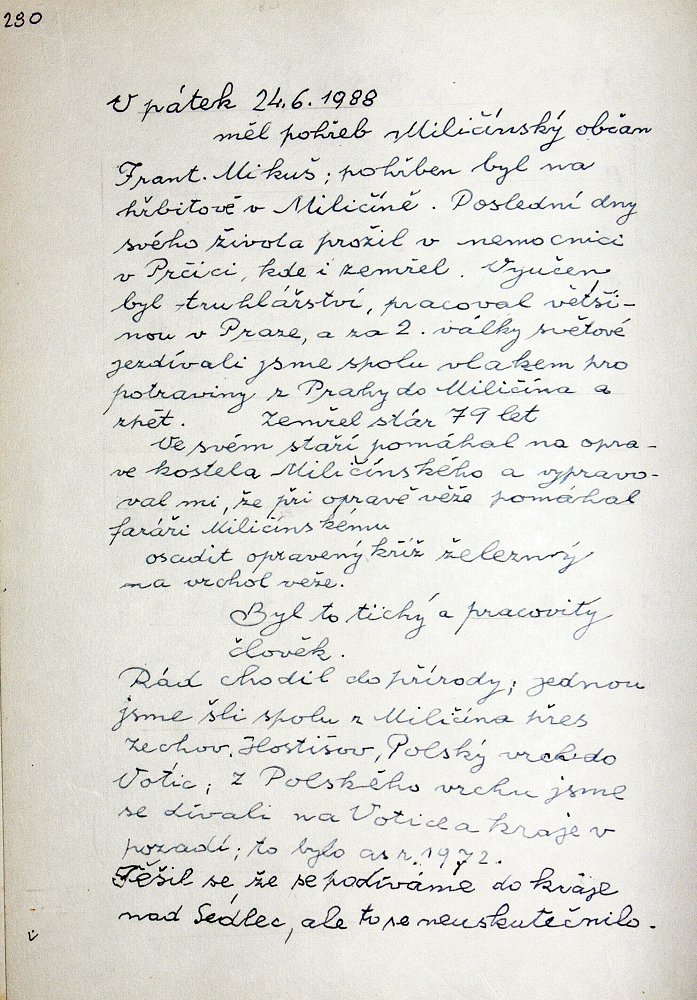 230
V pátek 24.6.1988
měl pohřeb Miličínský občan
Frant. Mikuš; pohřben byl na
hřbitově v Miličíně. Poslední dny
svého života prožil v nemocnici
v Prčici, kde i zemřel. Vyučen
byl truhlářství, pracoval větši-
nou v Praze, a za 2. války světové
jezdívali jsme spolu vlakem pro
potraviny z Prahy do Miličína a
zpět. Zemřel stár 79 let
Ve svém staří pomáhal na opra-
ve kostela Miličínského a vypravo-
val mi, že při opravě věže pomáhal
faráři Miličínskému
osadit opravený kříž železný
na vrchol věže.
Byl to tichý a pracovitý
člověk.
Rád chodil do přírody; jednou
jsme šli spolu z Miličína přes
Zechov, Hostišov, Polský vrch do
Votic; z Polského vrchu jsme
se dívali na Votice a kraje v
pozadí; to bylo as r. 1972.
Těšil se že se podíváme do kraje
nad Sedlec, ale to se neuskutečnilo.